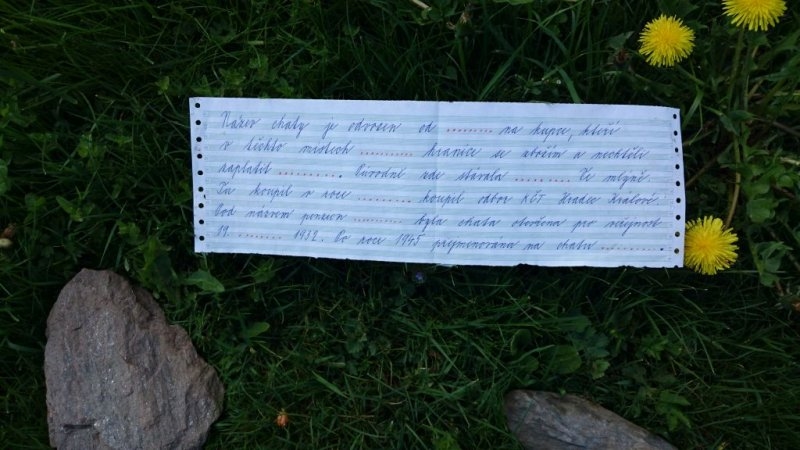 Název chaty je odvozen od ......... na kupce, kteří
v těchto místech .......... hranice se zbožím a nechtěli
zaplatit .......... . Původně zde stávala ......... . Ze mlýna
Tu koupil v roce ......... koupil odbor KČT Hradce Králové.
Pod názvem penzion ........ byla chata otevřena pro veřejnost
19. ........ 1932. Po roce 1945 přejmenována na chatu .......... .